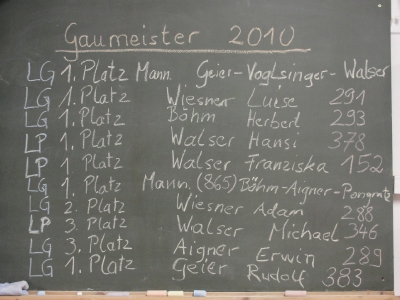 Gaumeister 2010
LG 1. Platz Mann. Geier-Voglsinger-Walser
LG 1. Platz Wiesner Luise 291
LG 1. Platz Böhm Herbert 293
LP 1. Platz Walser Hansi 378
LP 1. Platz Walser Franziska 152
LG 1. Platz Mann. (865) Böhm-Aigner-Pongratz
LG 2. Platz Wiesner Adam 288
LP 3. Platz Walser Michael 346
LG 3. Platz Aigner Erwin 289
LG 1. Platz Geier Rudolf 383